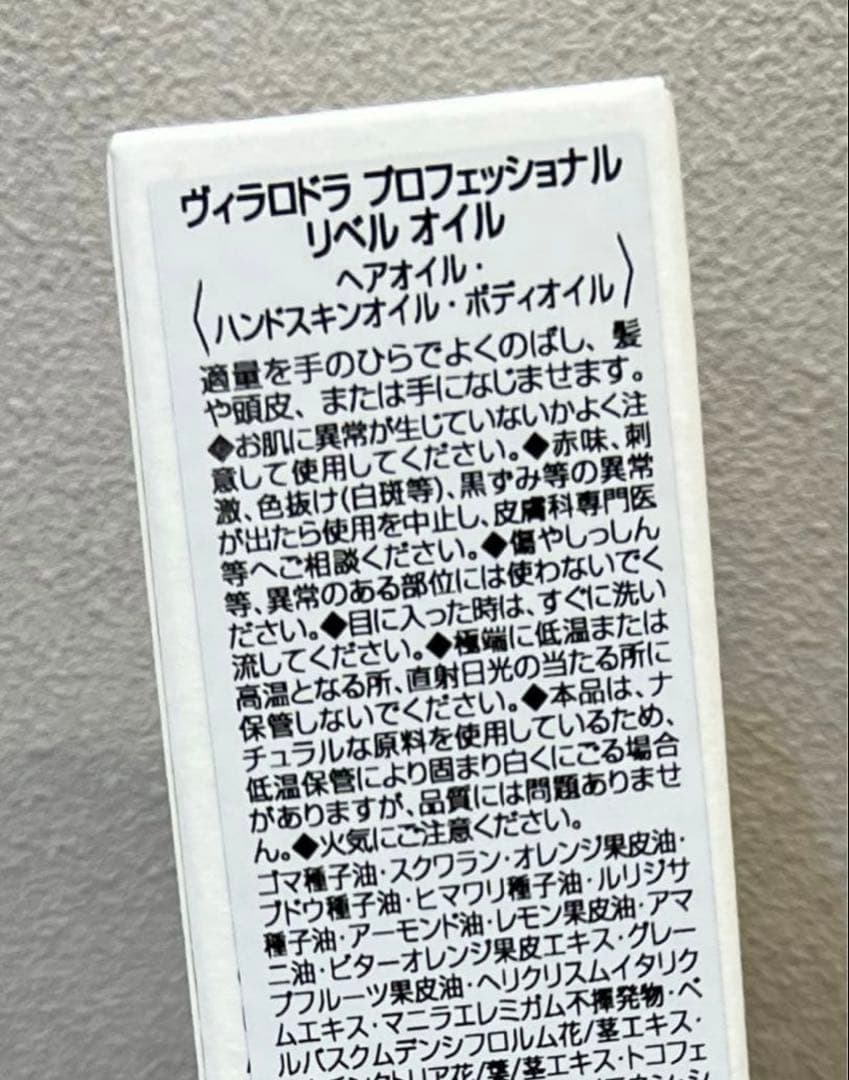 ヴィラロドラ プロフェッショナル
リベル オイル
〈ヘアオイル・
ハンドスキンオイル・ボディオイル〉
適量を手のひらでよくのばし、髪
や頭皮、または手になじませます。
◆お肌に異常が生じていないかよく注
意して使用してください。◆赤味、刺
激、色抜け(白斑等)、黒ずみ等の異常
が出たら使用を中止し、皮膚科専門医
等へご相談ください。◆傷やしっしん
等、異常のある部位には使わないでく
ださい。◆目に入った時は、すぐに洗い
流してください。◆極端に低温または
高温となる所、直射日光の当たる所に
保管しないでください。◆本品は、ナ
チュラルな原料を使用しているため、
低温保管により固まり白くにごる場合
がありますが、品質には問題ありませ
ん。◆火気にご注意ください。
ゴマ種子油・スクワラン・オレンジ果皮油・
ブドウ種子油・ヒマワリ種子油・ルリジサ
種子油・アーモンド油・レモン果皮油・アマ
ニ油・ビターオレンジ果皮エキス・グレー
プフルーツ果皮油・ヘリクリスムイタリク
ムエキス・マニラエレミガム不揮発物・ベ
ルバスクムデンシフロルム花/茎エキス・
リア花/葉/茎エキス・トコフェ